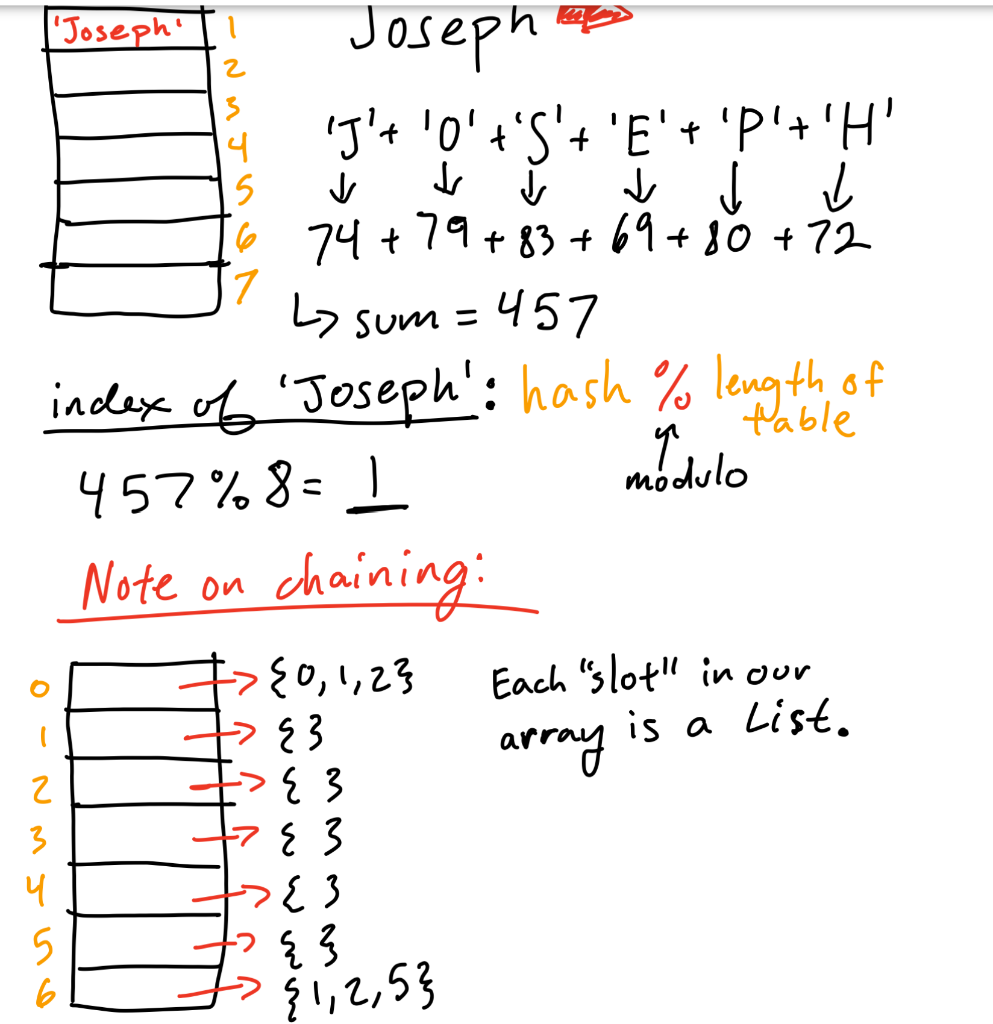 'Joseph' 1
Joseph
2
3
4
5
6
7
'J' + 'O' + 'S' + 'E' + 'P' + 'H'
74 + 79 + 83 + 69 + 80 + 72
↳ sum = 457
index of 'Joseph': hash % length of
table
modulo
457 % 8 = 1
Note on chaining:
0 → {0,1,2}
1 → { }
2 → { }
3 → { }
4 → { }
5 → { }
6 → {1,2,5}
Each "slot" in our
array is a List.